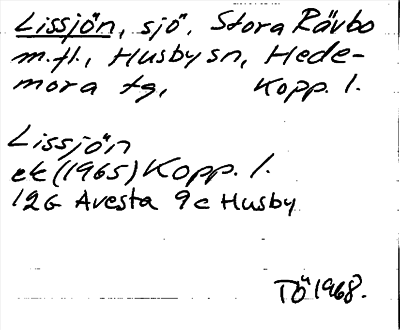 Lissjön, sjö, Stora Rävbo
m.fl., Husby sn, Hede-
mora tg, Kopp. l.
Lissjön
ek (1965) Kopp. l.
12G Avesta 9c Husby
TÖ 1968.